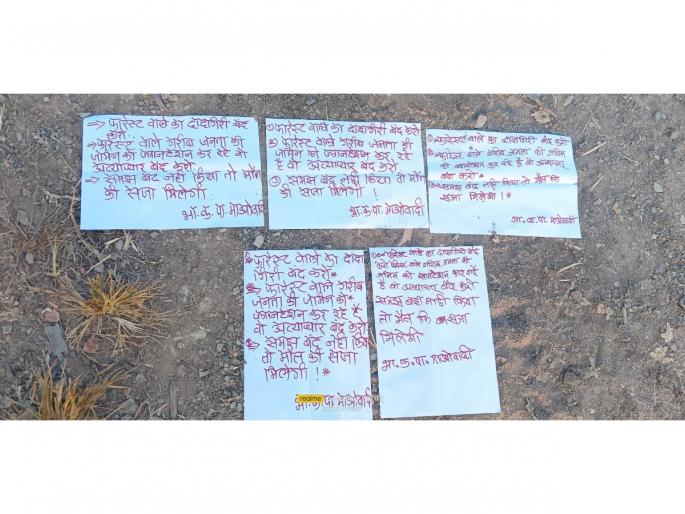 ⇒ फारेस्ट वाले का दादागिरी बंद
करो.
⇒ फारेस्ट वाले गरीब जनता की
जमिन को प्लानटेशन कर रहे वो
अत्याचार बंद करो.
⇒ समझ बंद नहीं किया तो मौत
की सजा मिलेगी
भा.क.पा माओवादी
फारेस्ट वाले का दादागिरी बंद करो
फारेस्ट वाले गरीब जनता की
जमिन को प्लानटेशन कर रहे
है वो अत्याचार बंद करो
समझ बंद नहीं किया तो मौत
की सजा मिलेगी !
भा.क.पा माओवादी
फारेस्ट वाले का दादागिरी बंद करो
फारेस्ट वाले गरीब जनता की जमिन
को प्लानटेशन कर रहे है वो अत्याचार
बंद करो*
समझ बंद नहीं किया तो मौत की
सजा मिलेगी !*
भा.क.पा. माओवादी
फारेस्ट वाले का दादा
गिरी बंद करो*
फारेस्ट वाले गरीब
जनता की जमिन को*
प्लानटेशन कर रहे है
वो अत्याचार बंद करो
समझ बंद नहीं किये
तो मौत की सजा
मिलेगी !*
भा.क.पा माओवादी
realme
वाले का दादागिरी बंद
करो वाले गरीब जनता की
जमिन को प्लानटेशन कर रहे
है वो अत्याचार बंद करो
समझ नहीं किया
तो सजा
मिलेगी
भा.क.पा. माओवादी